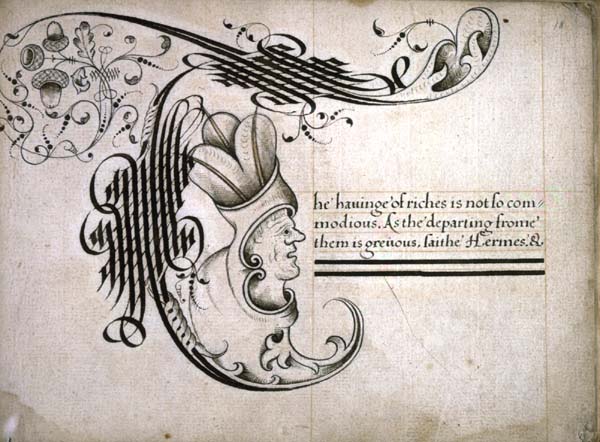 The hauinge of riches is not so com=
modious. As the departing frome
them is greiuous, saithe Hermes. &